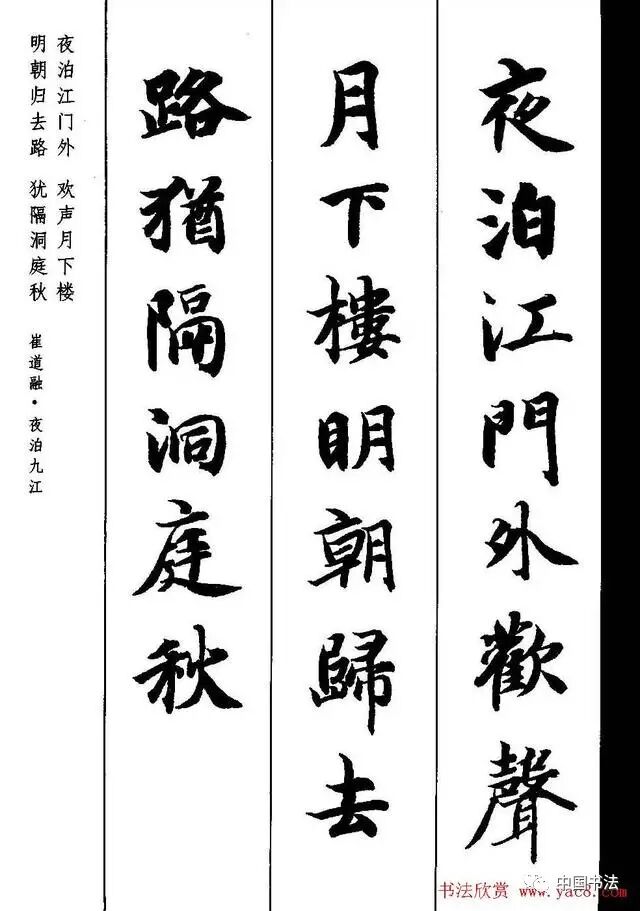 夜泊江門外歡聲
月下樓明朝歸去
路猶隔洞庭秋
夜泊江门外 欢声月下楼
明朝归去路 犹隔洞庭秋
崔道融·夜泊九江
书法欣赏 www.yac8.com
中国书法